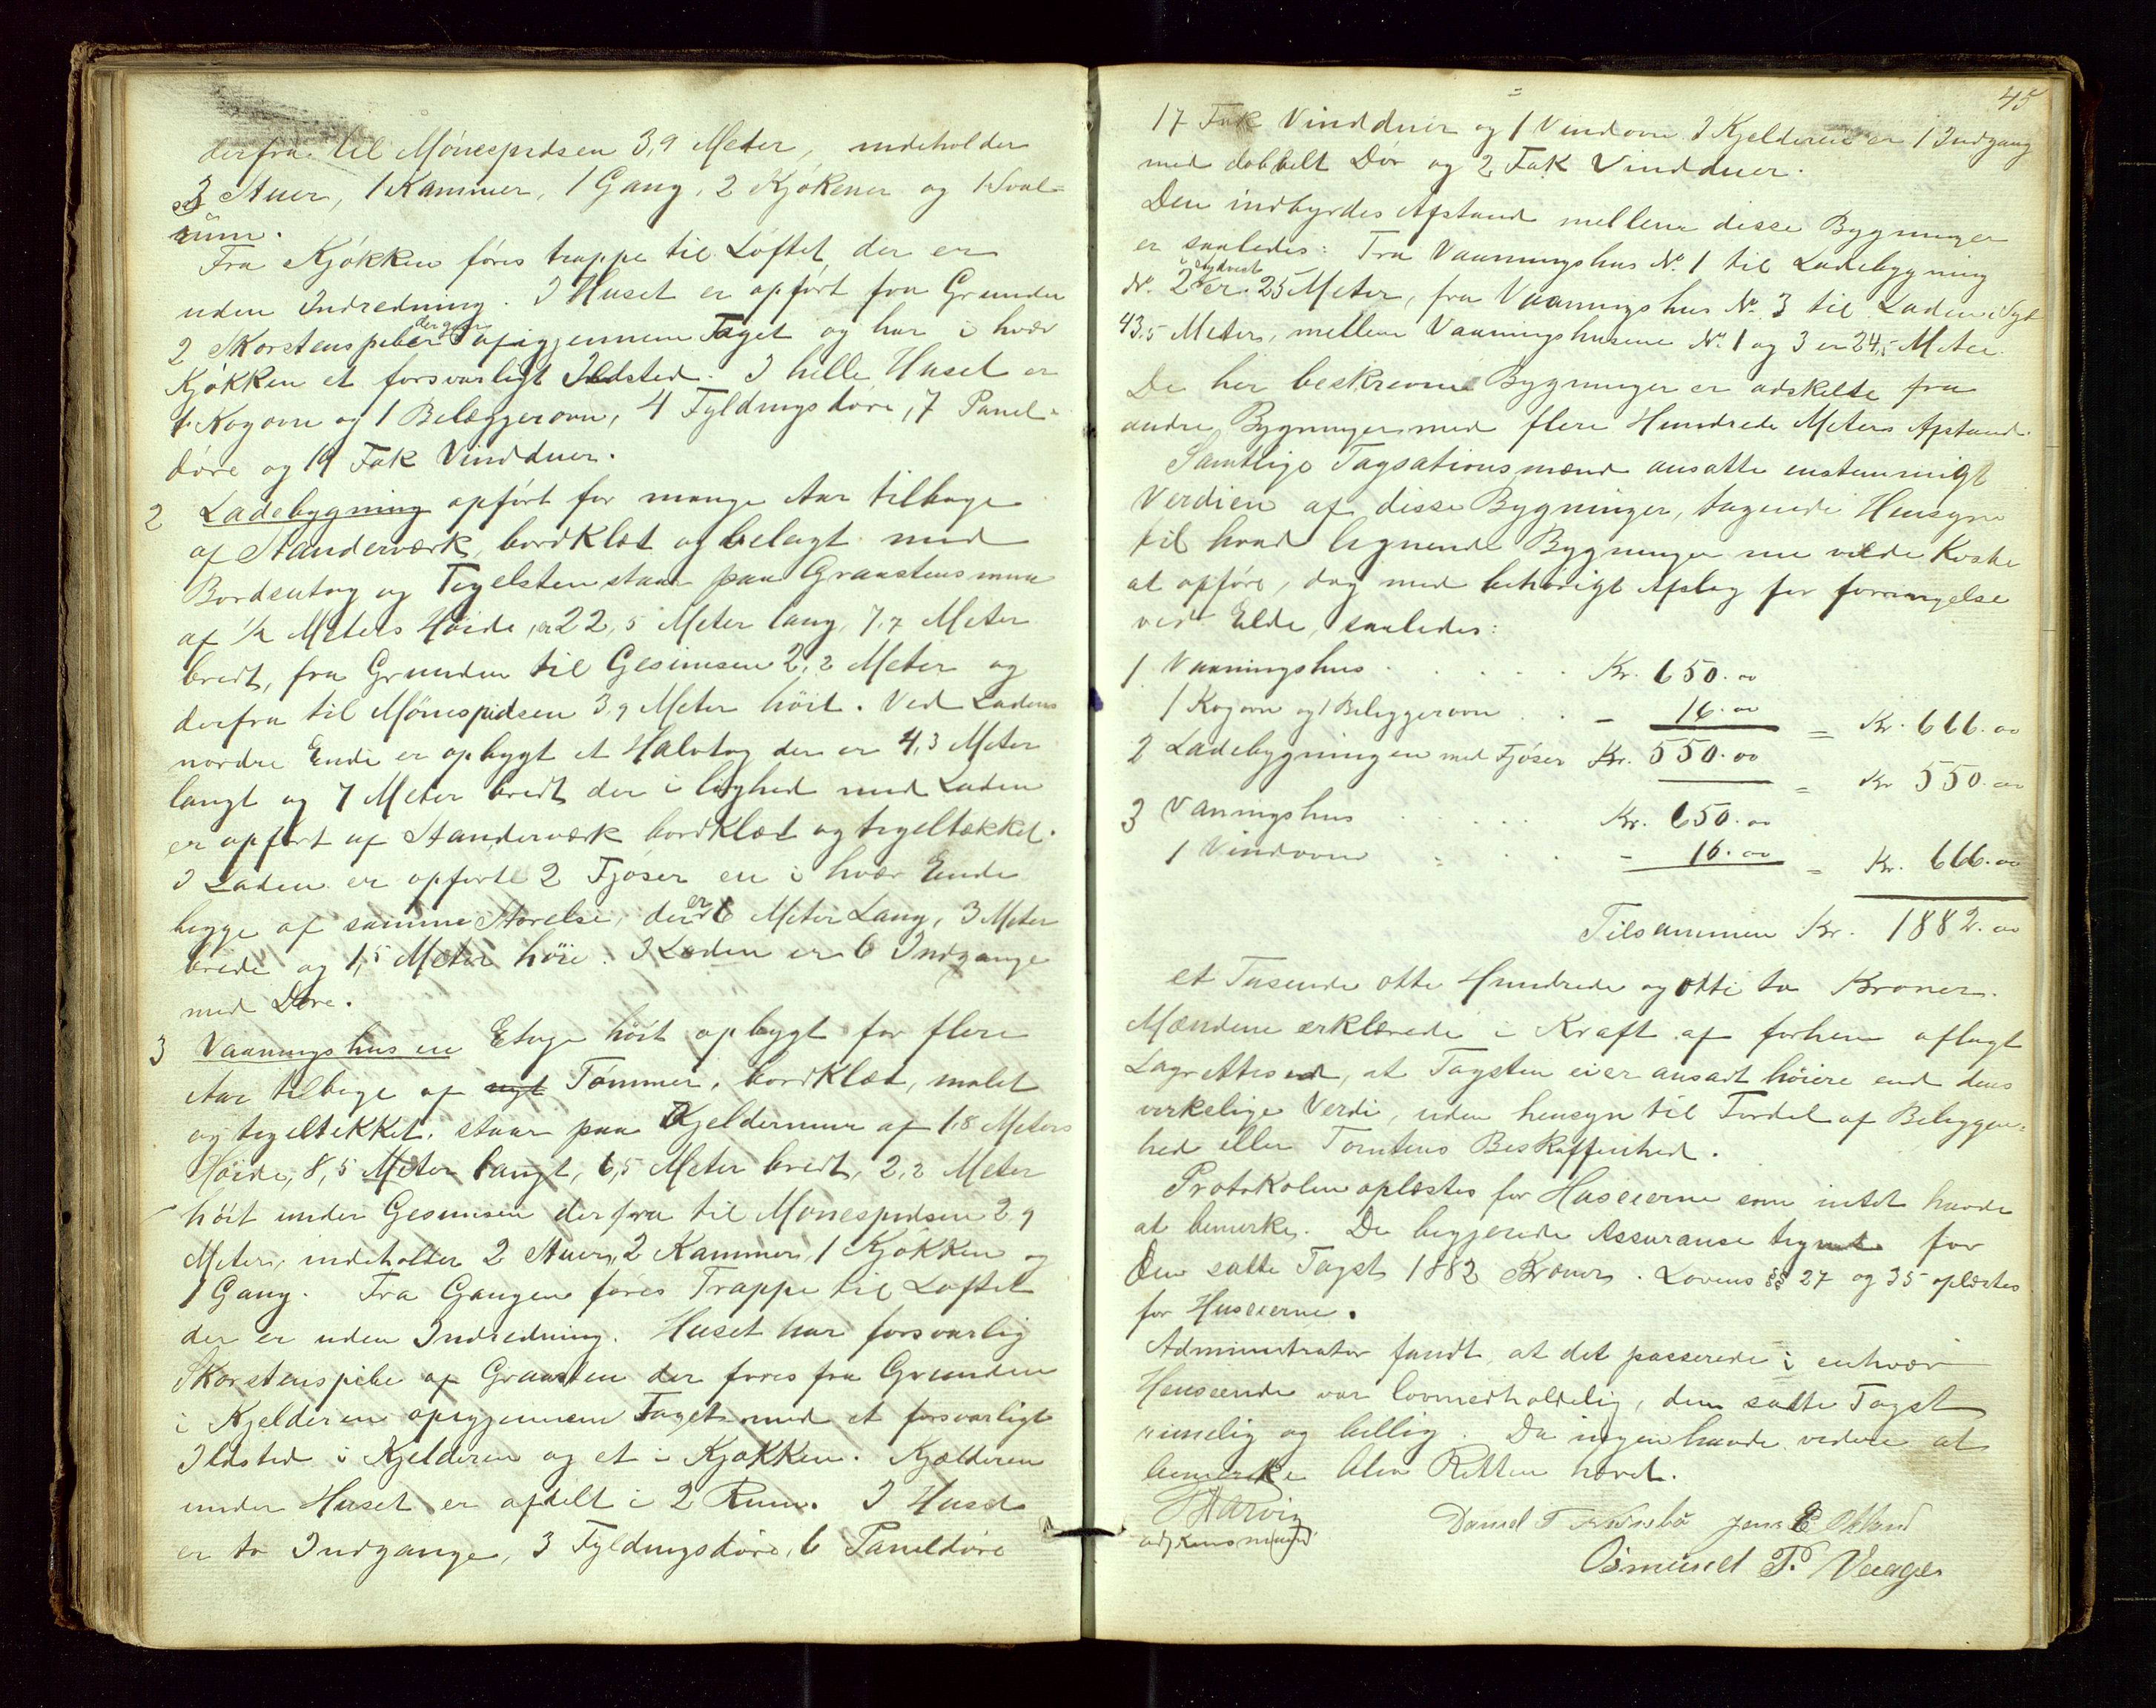 derfra til Mönespidsen 3,9 Meter, indeholder
3 Stuer, 1 Kammer, 1 Gang, 2 Kjökener og 1 Sval-
rüm.
Fra Kjökken föres trappe til Loftet der er
uden Indredning. I Huset er opfört fra Grunden
2 Skorstenspiber der gaar op igjennem Taget og har i hver
Kjökken et forsvarligt Ildsted. I helle Huset er
1 Kogovn og 1 Belæggerovn, 4 Fyldingsdöre, 7 Panel-
döre og 19 Fak Vindduer.
2 Ladebygning opfört for mange Aar tilbage
af Standerværk, bordklæt og belagt med
Bordsutag og Tegelsten staar paa Graastensmur
af 1/2 Meters Höide, er 22,5 Meter lang, 7,7 Meter
bredt, fra Grunden til Gesimsen 2,2 Meter og
derfra til Mönespidsen 3,9 Meter höit. Ved Ladens
nordre Ende er opbygt et Halvtag der er 4,3 Meter
langt og 7 Meter bredt der i lighed med Laden
er opfört af Standerværk bordklæt og tegeltækket.
I Laden er opförte 2 Fjöser en i hver Ende
begge af samme Störelse, der er 6 Meter Lang, 3 Meter
brede og 1,5 Meter höie. I Laden er 6 Indgange
med Döre.
3 Vaaningshus en Etage höit opbygt for flere
Aar tilbage af nyt Tömmer, bordklæt, malet
og tegeltækket, staar paa Kjeldermur af 1,8 Meters
Höide, 8,5 Meter langt, 6,5 Meter bredt, 2,2 Meter
höit under Gesimsen derfra til Mönespidsen 2,9
Meter, indeholder 2 Stuer, 2 Kammer, 1 Kjökken og
1 Gang. Fra Gangen föres Trappe til Loftet
der er uden Indredning. Huset har forsvarlig
Skorstenspibe af Graasten der föres fra Grunden
i Kjelderen opigjennem Taget med et forsvarligt
Ildsted i Kjelderen og et i Kjökken. Kjælderen
under Huset er afdelt i 2 Rum. I Huset
er to Indgange, 3 Fyldingsdöre, 6 Paneldöre
45
17 Fak Vindduer og 1 Vindovn I Kjelderen er 1 Indgang
med dobbelt Dör og 2 Fak Vindduer.
Den indbyrdes Afstand mellem disse Bygninger
er saaledes: Fra Vaaningshus No. 1 til Ladebygning
No. 2 i Sydvest er 25 Meter, fra Vaaningshus No. 3 til Laden i Syd
43,5 Meter, mellem Vaaningshusene No. 1 og 3 er 24,5 Meter.
De her beskrevne Bygninger er adskelte fra
andre Bygninger med flere Hundrede Meters Afstand.
Samtlige Tagsationsmænd ansatte enstemmigt
Verdien af disse Bygninger, tagende Hensyn
til hvad lignende Bygninger nu vilde Koste
at opföre, dog med behörigt Afslag for forringelse
ved Elde, saaledes:
1 Vaaningshus . . . . Kr. 650.00
1 Kogovn og 1 Beleggerovn . . - 16.00 = Kr. 666.00
2 Ladebygningen med Fjöser Kr. 550.00 = Kr 550.00
3 Vaningshus . . . . . Kr. 650.00
1 Vindovn . . . - 16.00 = Kr. 666.00
Tilsammen Kr. 1882.00
et Tusende otte Hundrede og otti to Kroner.
Mændene erklærede i Kraft af forhen aflagt
Lagrettesed, at Tagsten ei er ansadt höiere end dens
verkelige Verdi, uden hensyn til Fordel af Beliggen-
hed eller Tomtens Beskaffenhed.
Protokolen oplæstes for Huseierne som intet havde
at bemerke. De begjerede Assuranse tegnet for
Den satte Tagst 1882 Kroner. Lovens §§ 27 og 35 oplæstes
for Huseierne.
Administrator fandt, at det passerede i enhver
Henseende var lovmedholdelig, den satte Tagst
rimelig og billig. Da ingen havde videre at
bemerke blev Retten hævet.
Daniel T. Jens E Okland
Osmund T. Vaage